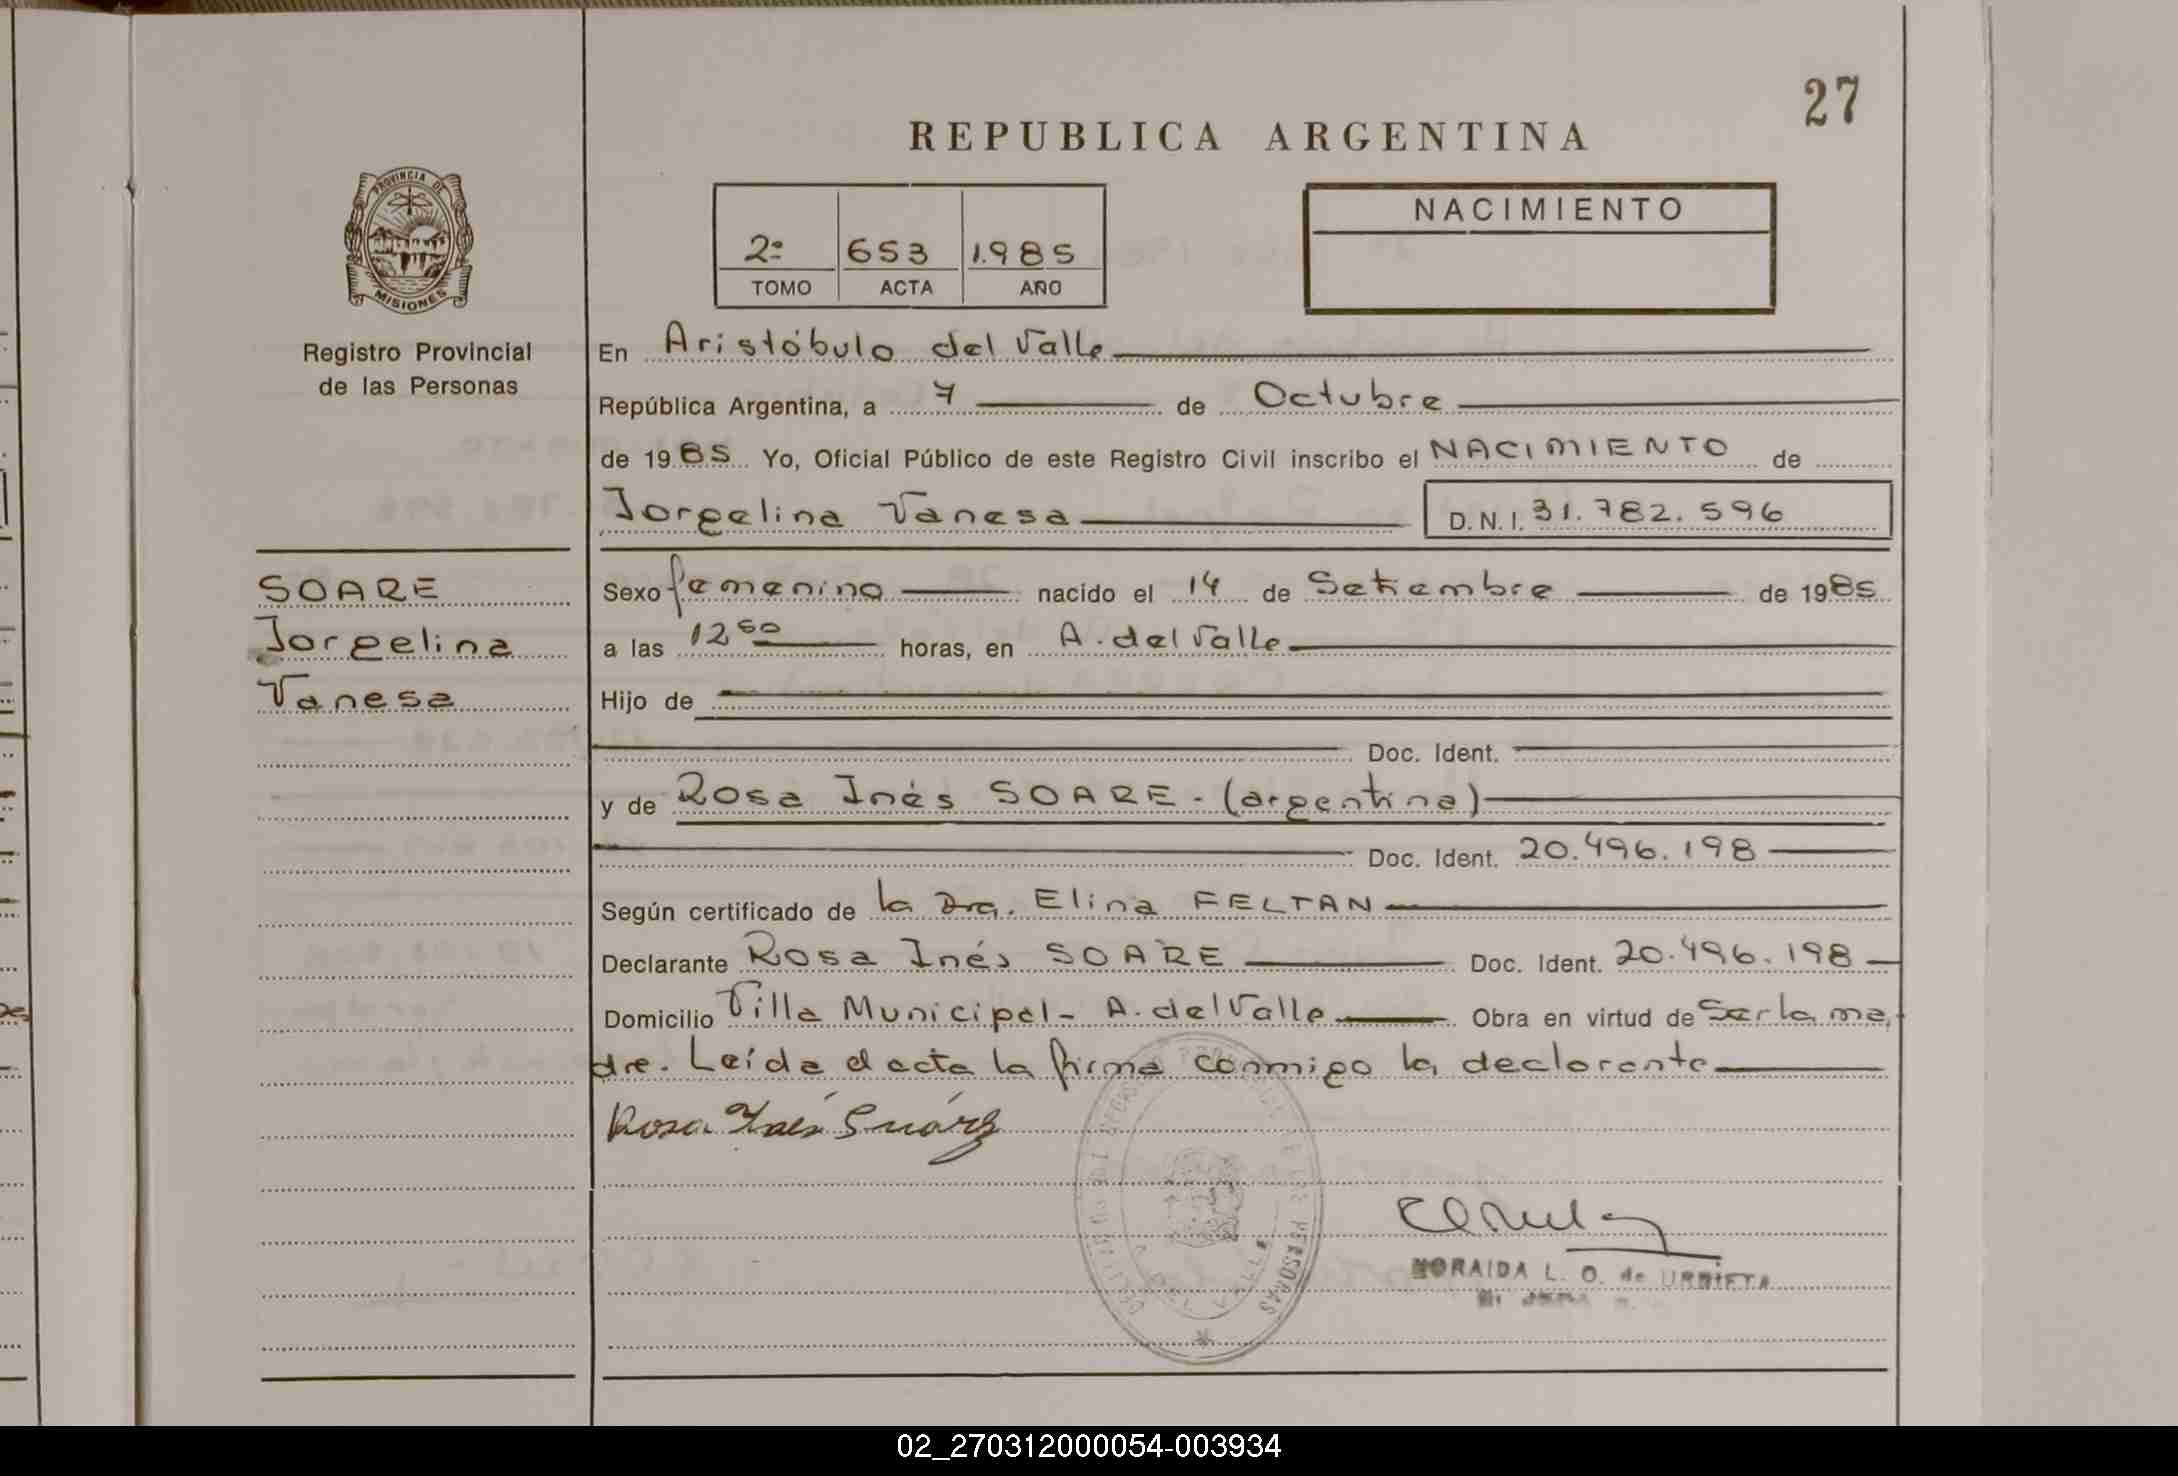 27
REPUBLICA ARGENTINA
PROVINCIA DE
MISIONES
Registro Provincial
de las Personas
2º 653 1.985
TOMO ACTA AÑO
NACIMIENTO
En Aristóbulo del Valle
República Argentina, a 7 de Octubre
de 1985 Yo, Oficial Público de este Registro Civil inscribo el NACIMIENTO de
Jorgelina Vanesa D.N.I. 31.782.596
SOARE
Jorgelina
Vanesa
Sexo femenino nacido el 14 de Setiembre de 1985
a las 12 horas, en A. del Valle
Hijo de
Doc. Ident.
y de Rosa Inés SOARE - (argentina)
Doc. Ident. 20.496.198
Según certificado de la Dra. Elina FELTAN
Declarante Rosa Inés SOARE Doc. Ident. 20.496.198
Domicilio Villa Municipal - A. del Valle Obra en virtud de Ser la ma
dre. Leída el acta la firma conmigo la declarante
Rosa Inés Suárez
PERSONAS
VALLE
NORAIDA L. O. de URRIETA
02_270312000054-003934